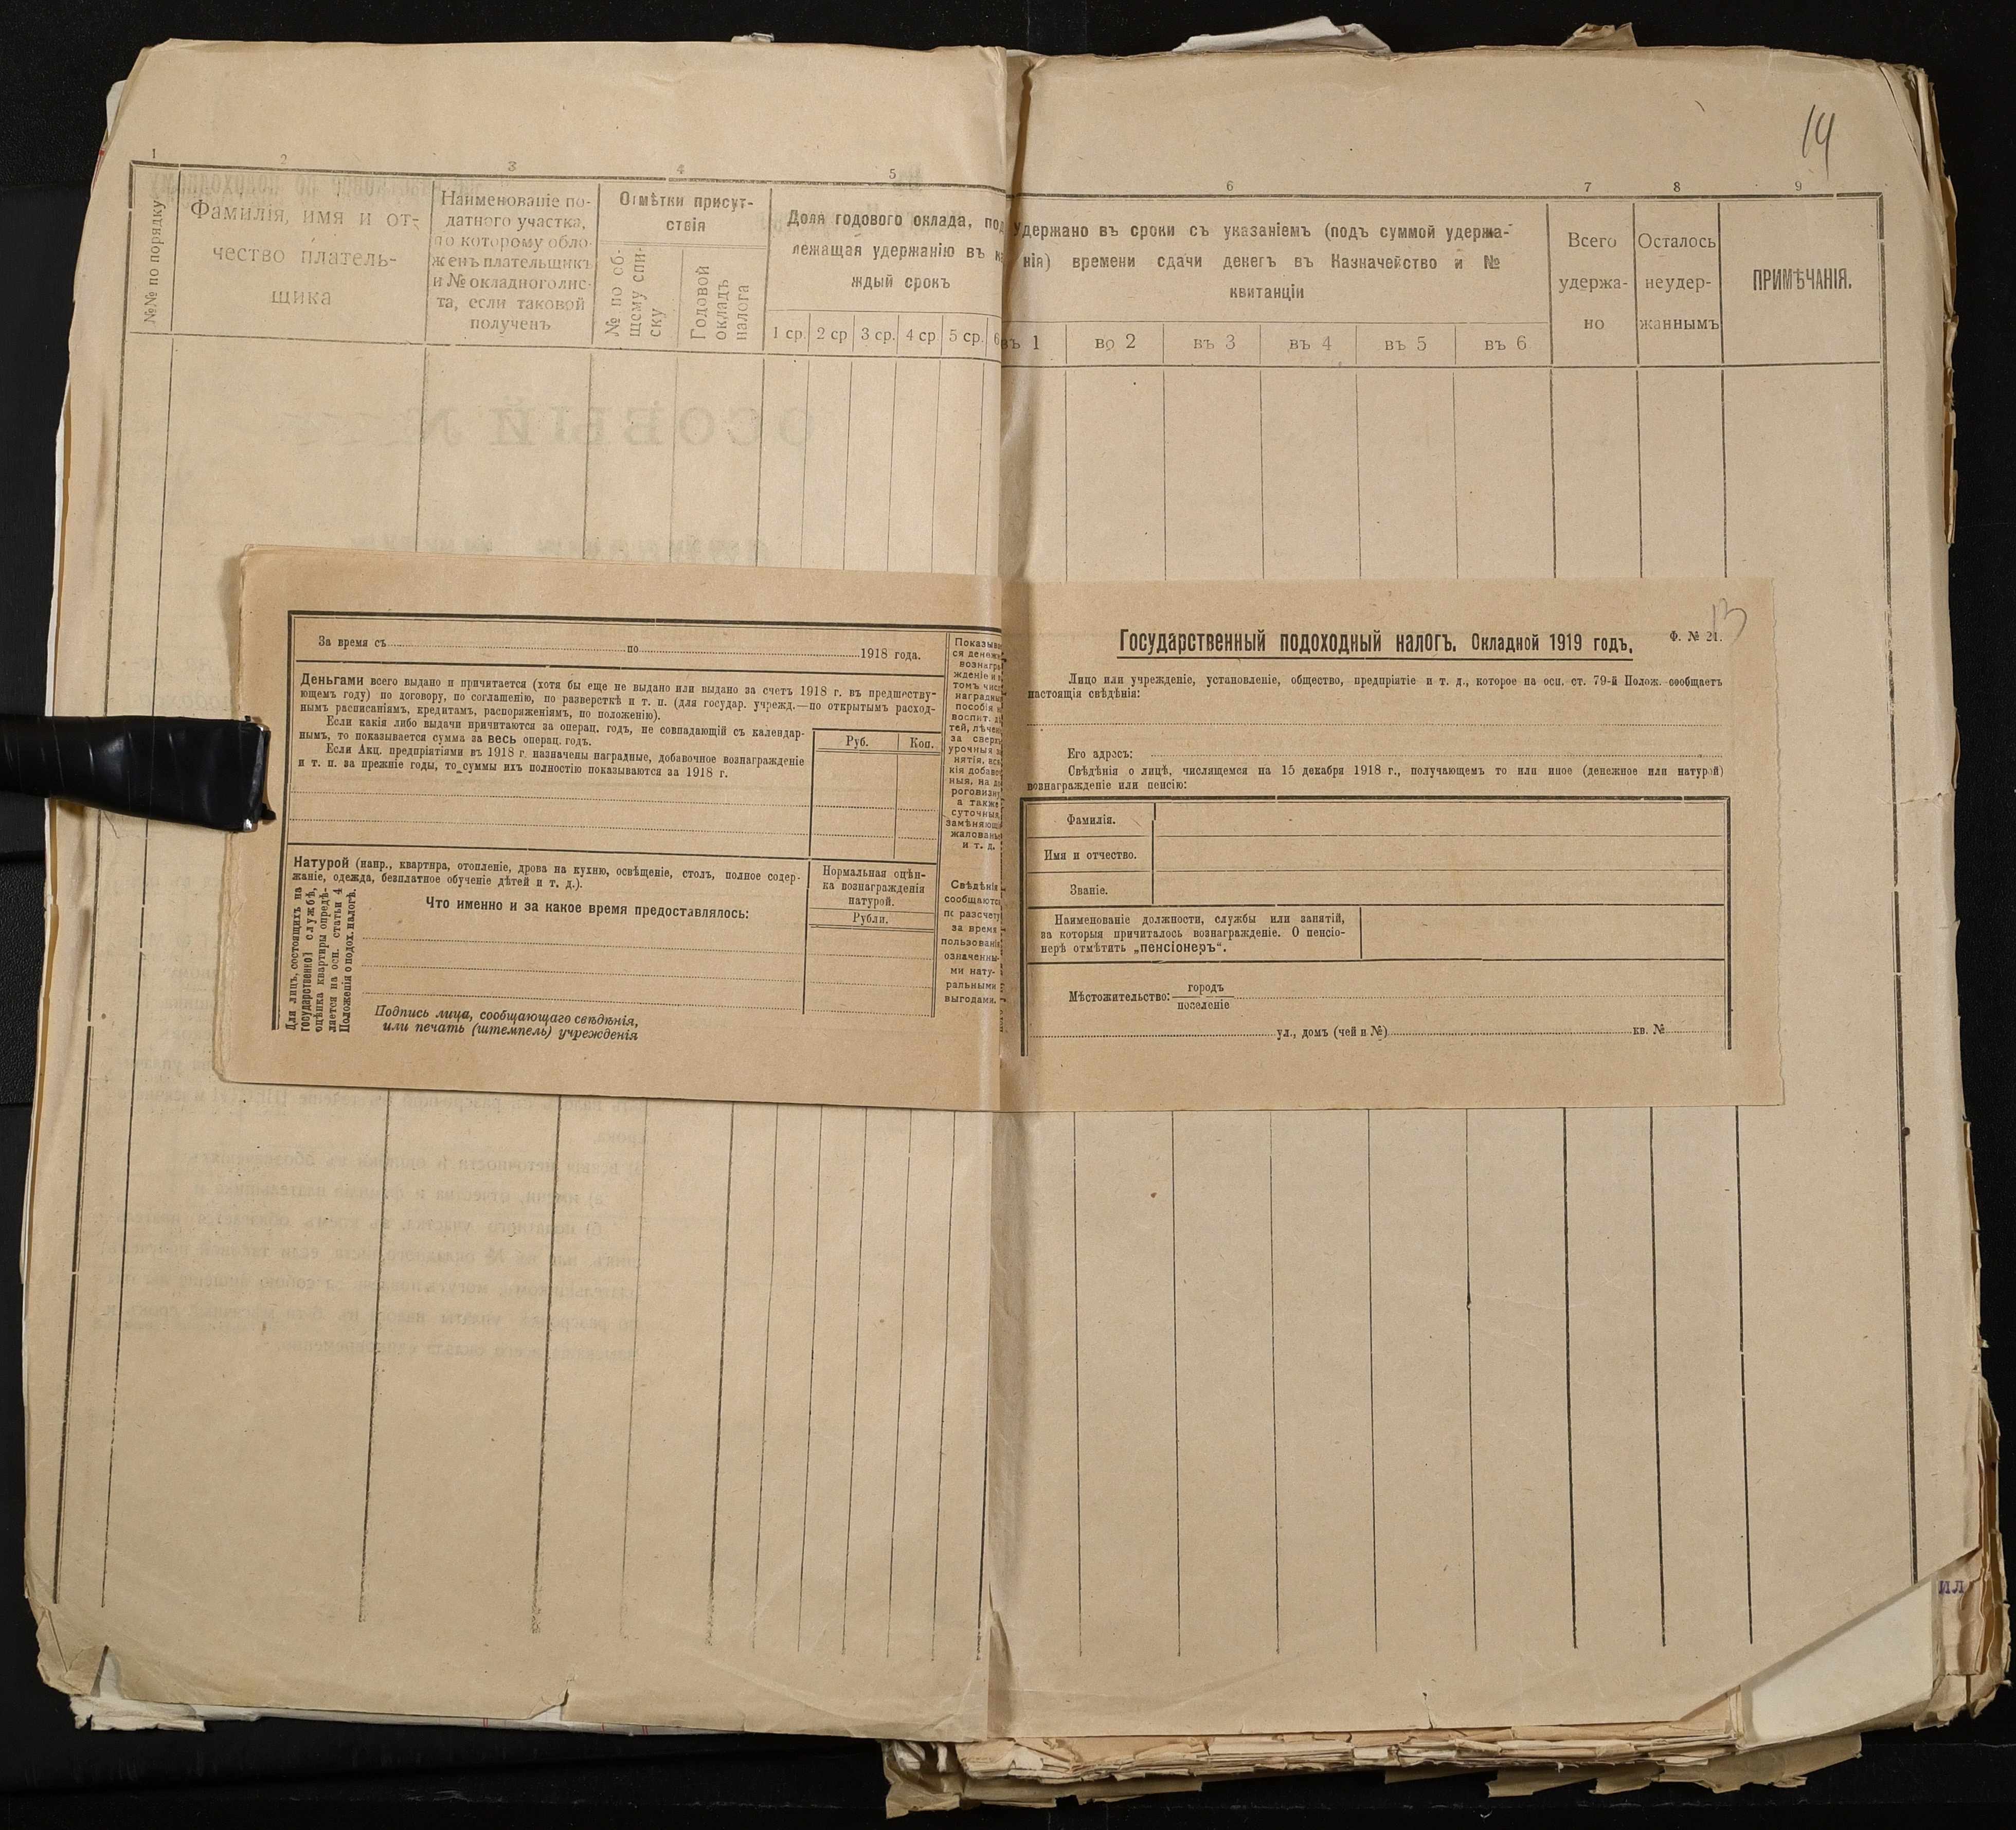 14
1 2 3 4 5 6 7 8 9
№№ по порядку
Фамилія, имя и от-
чество платель-
щика
Наименованіе по-
датного участка,
по которому обло-
женъ плательщикъ
и № окладного лис-
та, если таковой
полученъ
Отмѣтки присут-
ствія
№ по об-
щему спи-
ску
Годовой
окладъ
налога
Доля годового оклада, под
лежащая удержанію въ ка
ждый срокъ
1 ср. 2 ср 3 ср. 4 ср 5 ср. 6
Удержано въ сроки съ указаніемъ (подъ суммой удержа-
нія) времени сдачи денегъ въ Казначейство и №
квитанціи
въ 1 во 2 въ 3 въ 4 въ 5 въ 6
Всего
удержа-
но
Осталось
неудер-
жаннымъ
ПРИМѢЧАНІЯ.
За время съ по 1918 года.
Деньгами всего выдано и причитается (хотя бы еще не выдано или выдано за счетъ 1918 г. въ предшеству-
ющемъ году) по договору, по соглашенію, по разверсткѣ и т. п. (для государ. учрежд.—по открытымъ расход-
нымъ расписаніямъ, кредитамъ, распоряженіямъ, по положенію).
Если какія либо выдачи причитаются за операц. годъ, не совпадающій съ календар-
нымъ, то показывается сумма за весь операц. годъ.
Если Акц. предпріятіями въ 1918 г. назначены наградные, добавочное вознагражденіе
и т. п. за прежніе годы, то суммы ихъ полностію показываются за 1918 г.
Руб. Коп.
Натурой (напр., квартира, отопленіе, дрова на кухню, освѣщеніе, столъ, полное содер-
жаніе, одежда, безплатное обученіе дѣтей и т. д.).
Что именно и за какое время предоставлялось:
Нормальная оцѣн-
ка вознагражденія
натурой.
Рубли.
Для лицъ, состоящихъ на
государственной службѣ,
оцѣнка квартиры опредѣ-
ляется на осн. статьи 4
Положенія о подох. налогѣ.
Подпись лица, сообщающаго свѣдѣнія,
или печать (штемпель) учрежденія
Показыва
ся денежн
вознагра
жденіе и в
томъ числ
наградныя
пособія н
воспит. дѣ
тей, лѣчен
за сверх
урочныя за
нятія, вся
кія добавоч
ныя, на до
роговизну
а также
суточныя,
замѣняющ
жалованье
и т. д.
Свѣдѣнія
сообщаютс
по разсчету
за время
пользованія
означенны-
ми нату-
ральными
выгодами.
13
Государственный подоходный налогъ. Окладной 1919 годъ. Ф. № 21.
Лицо или учрежденіе, установленіе, общество, предпріятіе и т. д., которое на осн. ст. 79-й Полож. сообщаетъ
настоящія свѣдѣнія:
Его адресъ:
Свѣдѣнія о лицѣ, числящемся на 15 декабря 1918 г., получающемъ то или иное (денежное или натурой)
вознагражденіе или пенсію:
Фамилія.
Имя и отчество.
Званіе.
Наименованіе должности, службы или занятій,
за которыя причиталось вознагражденіе. О пенсіо-
нерѣ отмѣтить „пенсіонеръ“.
Мѣстожительство: городъ
поселеніе
ул., домъ (чей и №) кв. №
ил